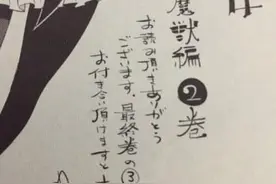 魔獣編❷巻
お読み頂きありがとう
ございます。最終巻の③
お付き合い頂けますと